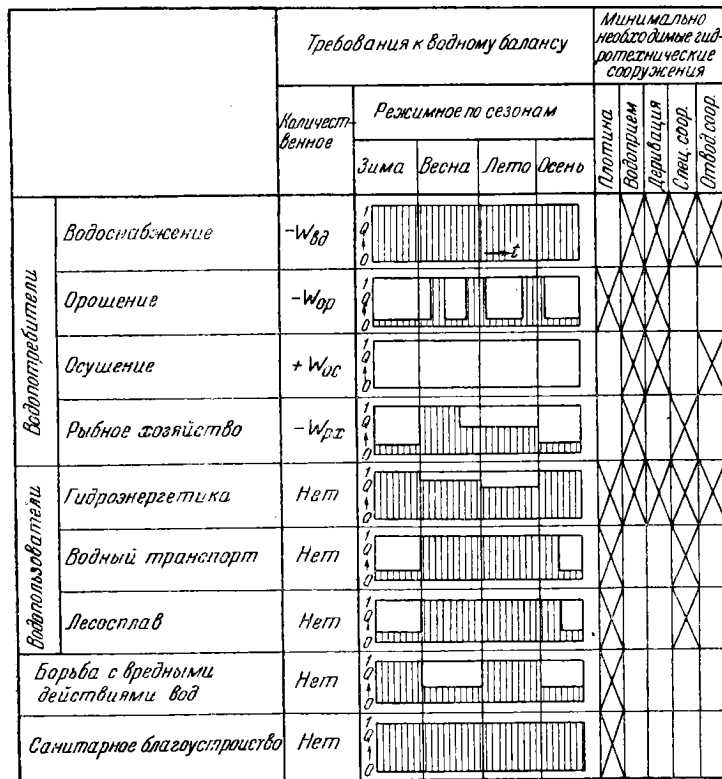 Требования к водному балансу
Минимально
необходимые гид-
ротехнические
сооружения
Количест-
венное
Режимное по сезонам
Зима
Весна
Лето
Осень
Плотина
Водоприем
Деривация
Спец. соор.
Отвод. соор.
Водопотребители
Водоснабжение
-Wвд
1
Q
0
t
Орошение
-Wор
1
Q
0
Осушение
+Wос
1
Q
0
Рыбное хозяйство
-Wрх
1
Q
0
Водопользователи
Гидроэнергетика
Нет
1
Q
0
Водный транспорт
Нет
1
Q
0
Лесосплав
Нет
1
Q
0
Борьба с вредными
действиями вод
Нет
1
Q
0
Санитарное благоустроиство
Нет
1
Q
0